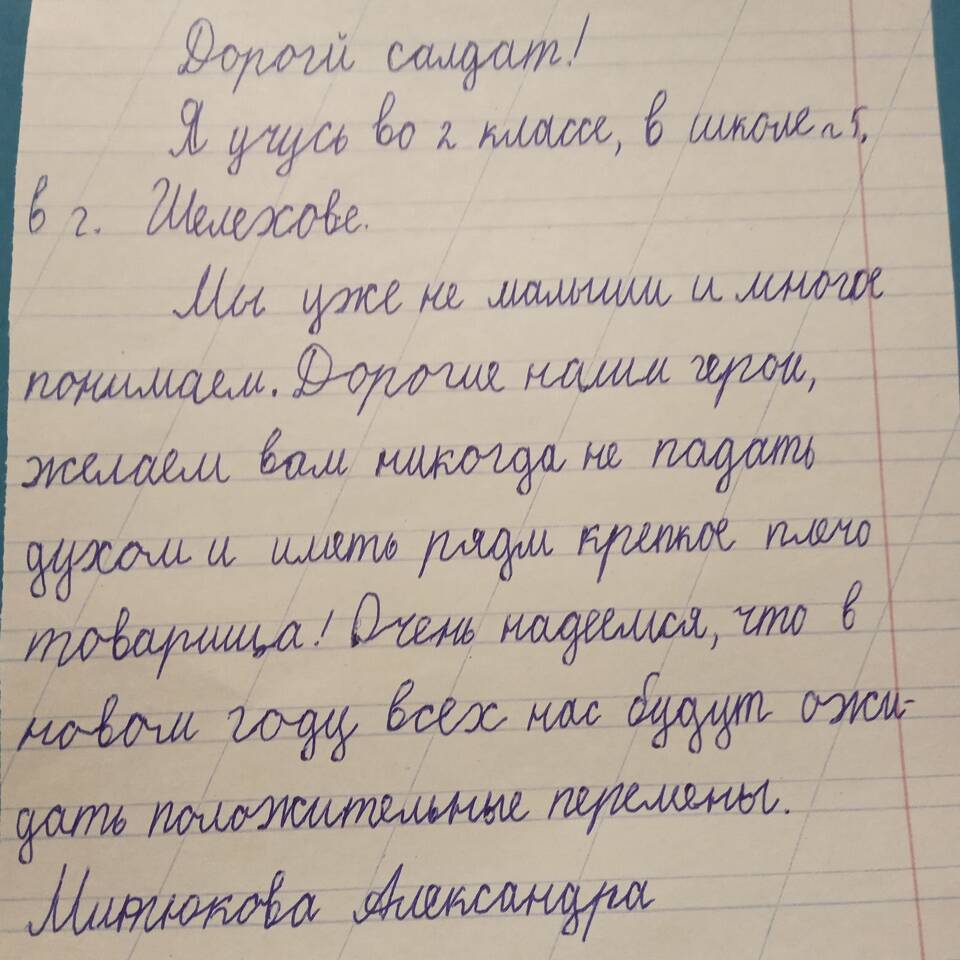 Дорогй салдат!
Я учусь во 2 классе, в школе № 5,
в г. Шелехове.
Мы уже не малыши и многое
понимаем. Дорогие наши герои,
желаем вам никогда не падать
духом и иметь рядм крепкое плечо
товарища! Очень надеемся, что в
новом году всех нас будут ожи-
дать положительные перемены.
Митюкова Александра